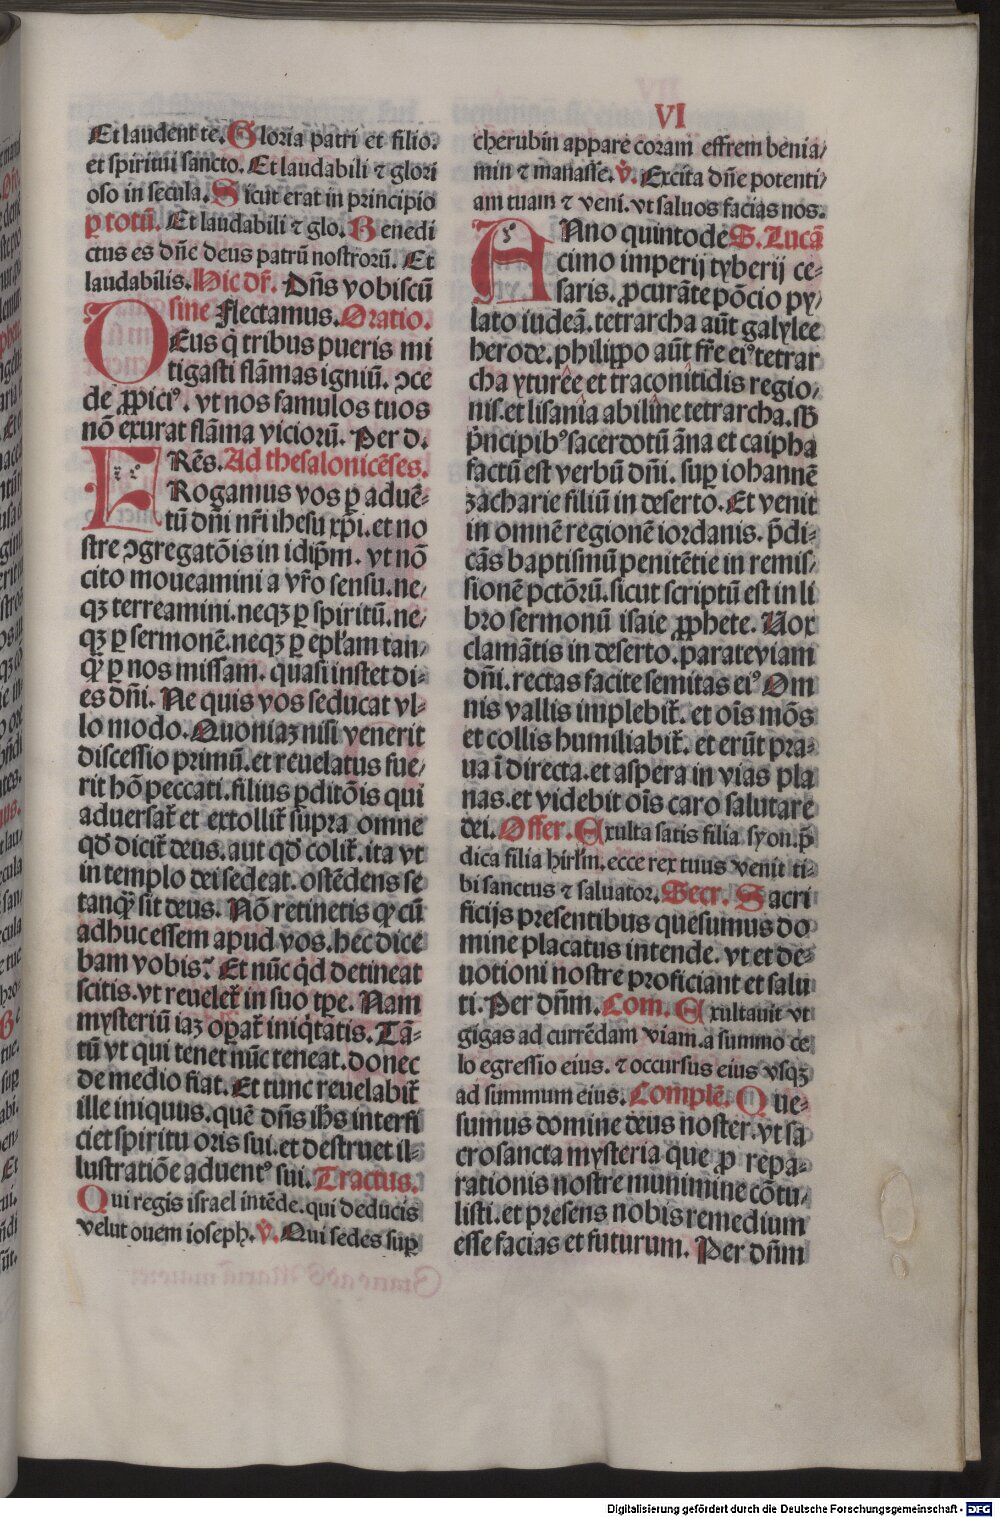 VI
Et laudent te. Gloria patri et filio.
et spiritui sancto. Et laudabili ⁊ glori
oso in secula. Sicut erat in principio
ꝑ totū. Et laudabili ⁊ glo. Benedi
ctus es dn̄e deus patrū nostrorū. Et
laudabilis. Hic dr̄. Dn̄s vobiscū
sine Flectamus. Oratio.
DEus q̄ tribus pueris mi
tigasti flāmas igniū. ɔce
de ꝓpiciꝰ. vt nos famulos tuos
nō exurat flāma viciorū. Per d.
FRēs. Ad thesalonicēses.
Rogamus vos ꝑ aduē-
tū dn̄i nr̄i ihesu xp̄i. et no
stre ɔgregatōis in idip̄m. vt nō
cito moueamini a vr̄o sensu. ne/
qꝫ terreamini. neqꝫ ꝑ spiritū. ne/
qꝫ ꝑ sermonē. neqꝫ ꝑ ep̄lam tan/
qꝫ ꝑ nos missam. quasi instet di-
es dn̄i. Ne quis vos seducat vl-
lo modo. Quoniaꝫ nisi venerit
discessio primū. et reuelatus fue/
rit hō peccati. filius ꝑditōis qui
aduersat᷑ et extollit᷑ supra omne
qd̄ dicit᷑ deus. aut qd̄ colit᷑. ita vt
in templo dei sedeat. ostēdens se
tanqꝫ sit deus. Nō retinetis qꝫ cū
adhuc essem apud vos. hec dice
bam vobis? Et nūc qd̄ detineat
scitis. vt reuelet᷑ in suo tꝑe. Nam
mysteriū iaꝫ oꝑat᷑ iniq̄tatis. Tā-
tū vt qui tenet nūc teneat. donec
de medio fiat. Et tunc reuelabit᷑
ille iniquus. quē dn̄s ih̄s interfi
ciet spiritu oris sui. et destruet il-
lustratiōe aduentꝰ sui. Tractus.
Qui regis israel intēde. qui deducis
velut ouem ioseph. V̄. Qui sedes suꝑ
cherubin appare coram effrem benia/
min ⁊ manasse. V̄. Excita dn̄e potenti/
am tuam ⁊ veni. vt saluos facias nos.
ANno quintode S. Lucā
cimo imperij tyberij ce-
saris. ꝓcurāte pōcio py/
lato iudeā. tetrarcha aūt galylee
herode. philippo aūt fr̄e eiꝰ tetrar
cha yturēe et traconitidis regio/
nis. et lisania abiline tetrarcha. sb̄
p̄ncipibꝰ sacerdotū āna et caipha
factū est verbū dn̄i. suꝑ iohannē
zacharie filiū in deserto. Et venit
in omnē regionē iordanis. p̄di-
cās baptismū penitētie in remis/
sionē pctōrū. sicut scriptū est in li
bro sermonū isaie ꝓphete. Uox
clamātis in deserto. parate viam
dn̄i. rectas facite semitas eiꝰ Om
nis vallis implebit᷑. et oīs mōs
et collis humiliabit᷑. et erūt pra-
ua ī directa. et aspera in vias pla
nas. et videbit oīs caro salutare
dei. Offer. Exulta satis filia syon. p̄
dica filia hirl̄m. ecce rex tuus venit ti-
bi sanctus ⁊ saluator. Secr. Sacri
ficijs presentibus quesumus do
mine placatus intende. vt et de-
uotioni nostre proficiant et salu
ti. Per dn̄m. Com. Exultauit vt
gigas ad currēdam viam. a summo ce
lo egressio eius. ⁊ occursus eius vsqꝫ
ad summum eius. Complē. Que-
sumus domine deus noster. vt sa
crosancta mysteria que ꝓ repa-
rationis nostre munimine cōtu/
listi. et presens nobis remedium
esse facias et futurum. Per dn̄m
Digitalisierung gefördert durch die Deutsche Forschungsgemeinschaft - DFG